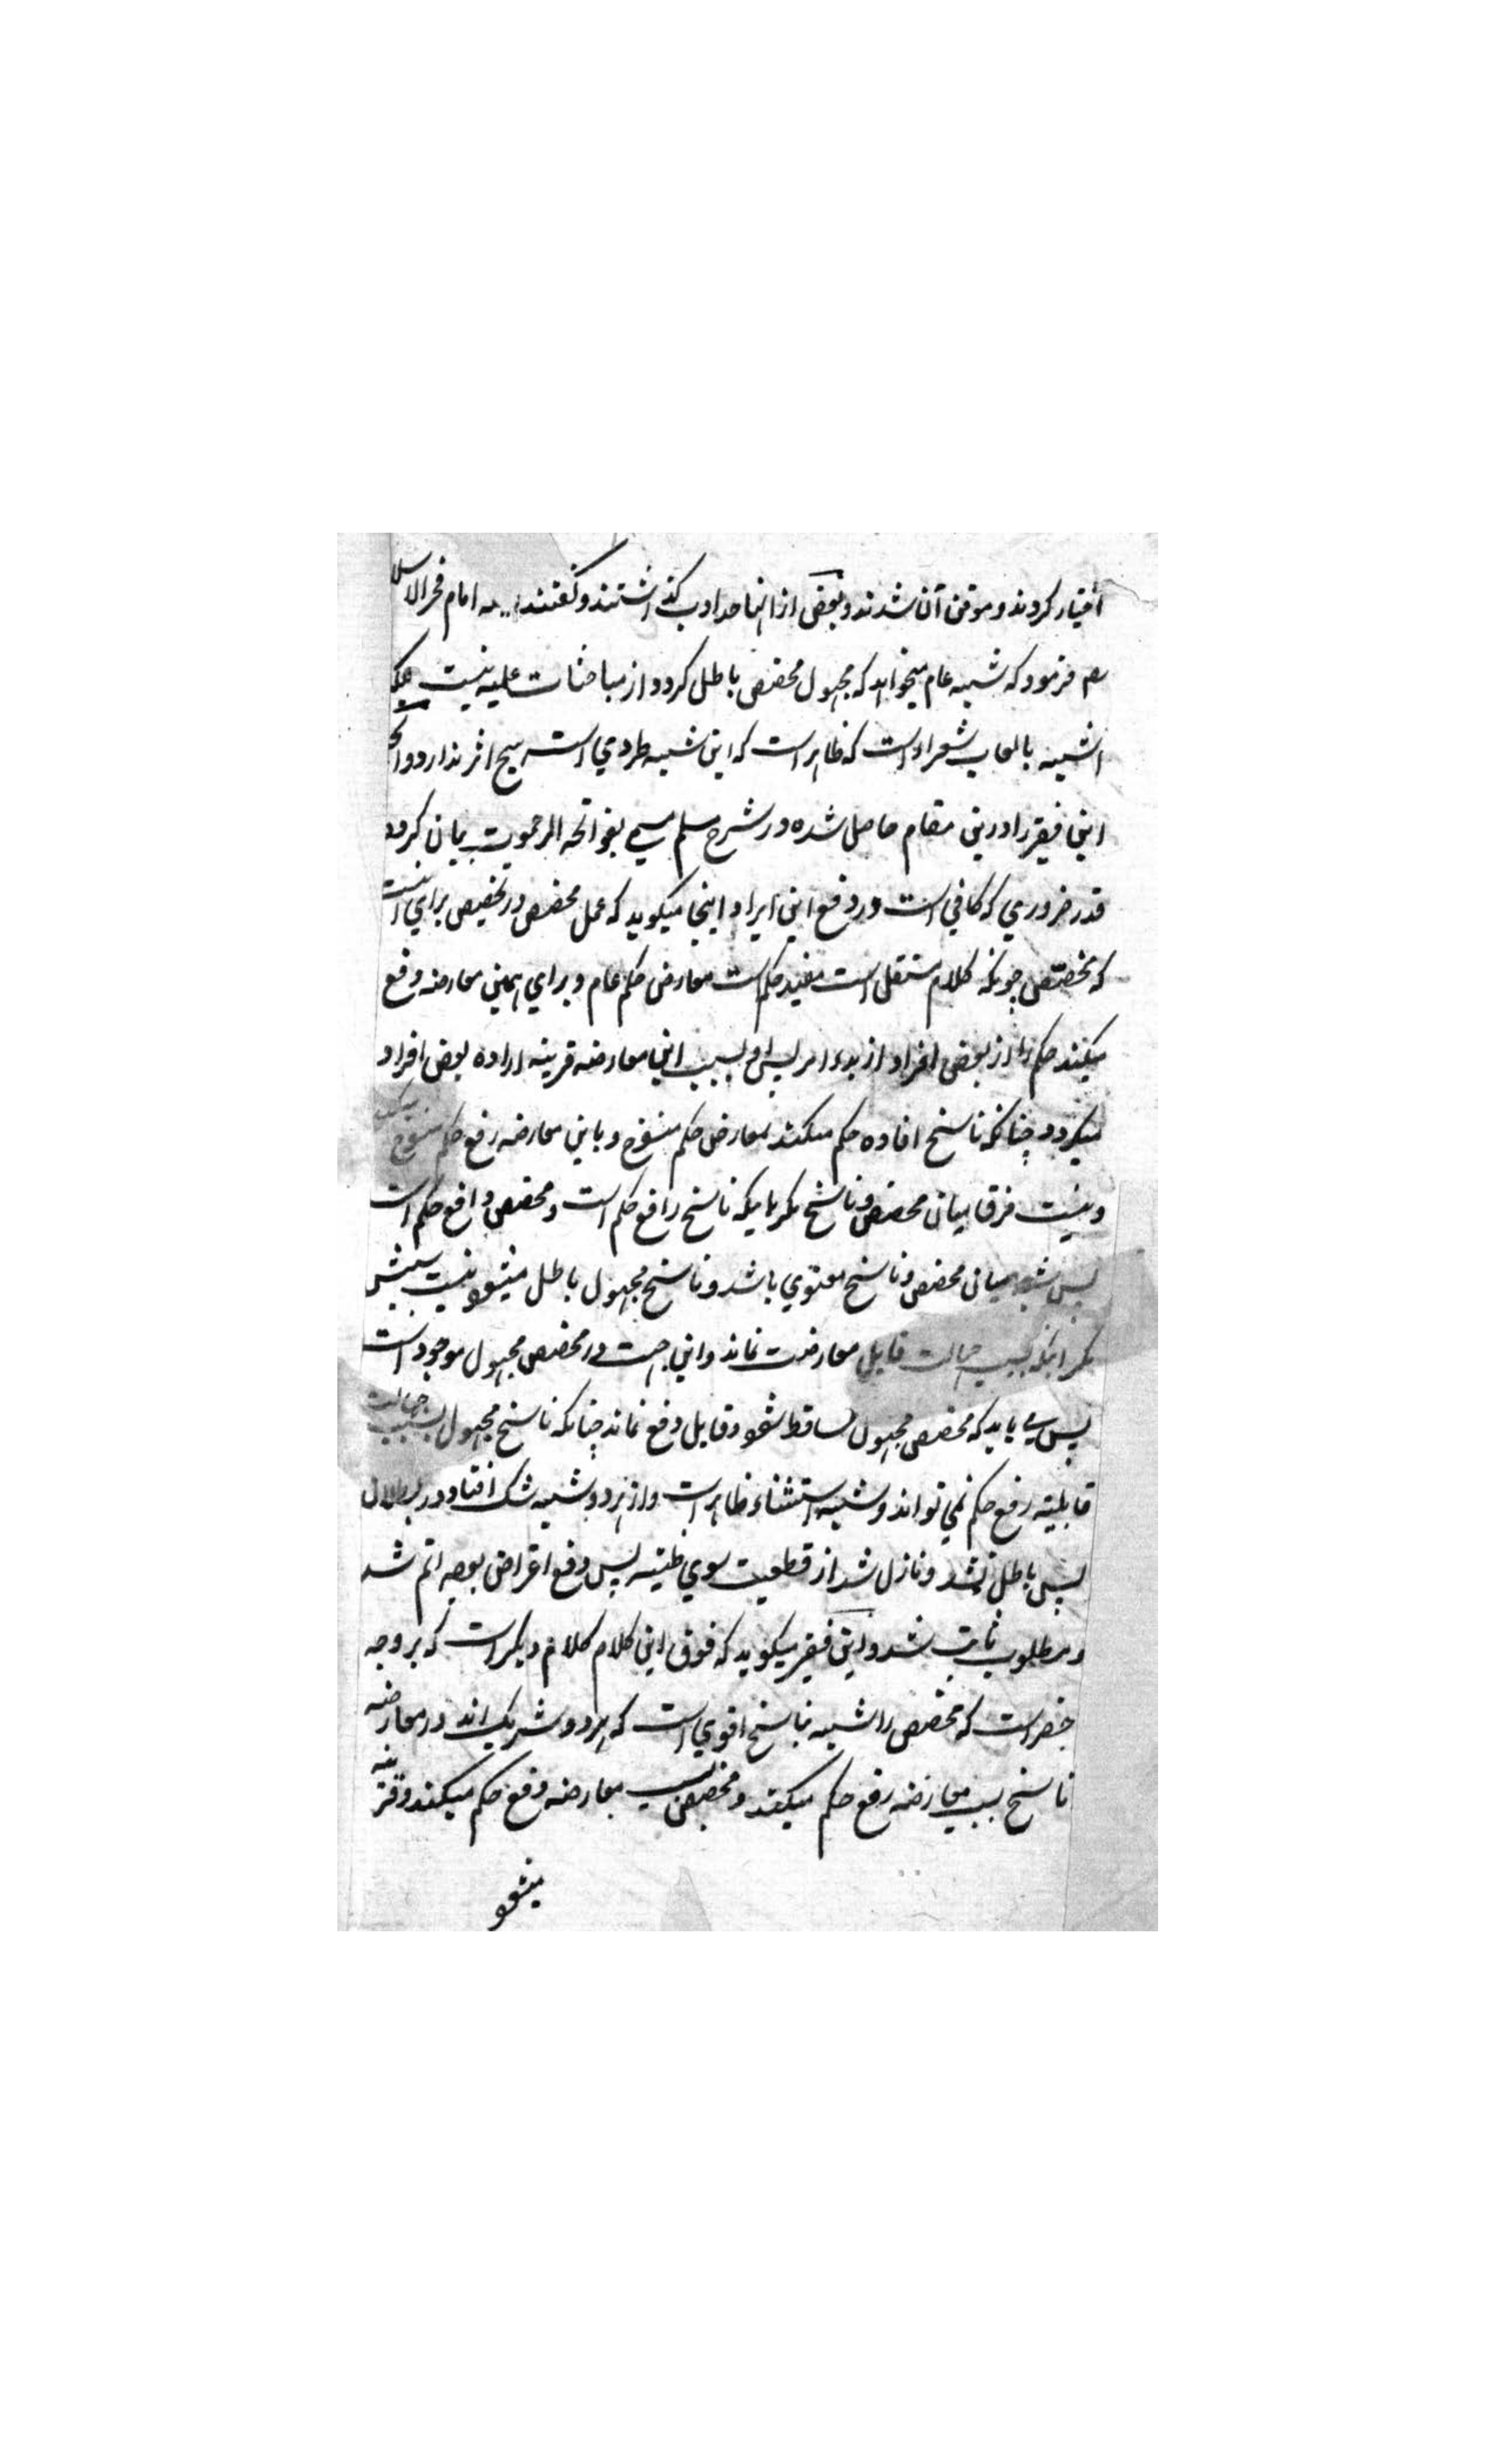 اختیار کردند و موقن آن شدند و بعضی از اینها حد ادب گذاشتند و گفتند امام فخر الاسلا
فرمود که شبه عام میخواهد که مجهول مخصص باطل کردد از مباحثات علمیه نیست بلکه
اشبه بالعاب شعراء است که ظاهر است که این شبه طردی است هیچ اثر ندارد و انچه
این فقیر را درین مقام حاصل شده در شرح مسلم مسمی بفواتح الرحموت بیان کرد و
قدر ضروری که کافی است در دفع این ایراد اینجا میکوید که عمل مخصص در تخصیص برای اینست
که مخصص چونکه کلام مستقل است مفید حکم است معارض حکم عام و برای همین معارضه دفع
میکند حکم را از بعضی افراد از بدء امر پس او بسبب این معارضه قرینه اراده بعض افراد
میکردد چنانکه ناسخ افاده حکم میکند معارض حکم منسوخ و باین معارضه رفع حکم منسوخ میکند
و نیست فرق میان مخصص و ناسخ مکر باینکه ناسخ رافع حکم است و مخصص دافع حکم است
پس شبه میان مخصص و ناسخ معنوی باشد و ناسخ مجهول باطل میشود نیست سببش
مکر اینکه بسبب جهالت قابل معارضت نماند و این جهت در مخصص مجهول موجود است
پس می باید که مخصص مجهول ساقط شود و قابل دفع نماند چنانکه ناسخ مجهول بسبب جهالت
قابلیته رفع حکم نمی تواند و شبه استثناء ظاهر است و از هر دو شبه شک افتاد در بطلان
پس باطل نشد و نازل شد از قطعیت سوی ظنیته پس دفع اعتراض بوجه اتم شد
و مطلوب ثابت شد و این فقیر میکوید که فوق این کلام کلام دیکر است که بر وجه
است که مخصص را شبه بناسخ اقوی است که هر دو شریک اند در معارضه
ناسخ بسبب معارضه رفع حکم میکند و مخصص بسبب معارضه دفع حکم میکند و قرینه
میشود